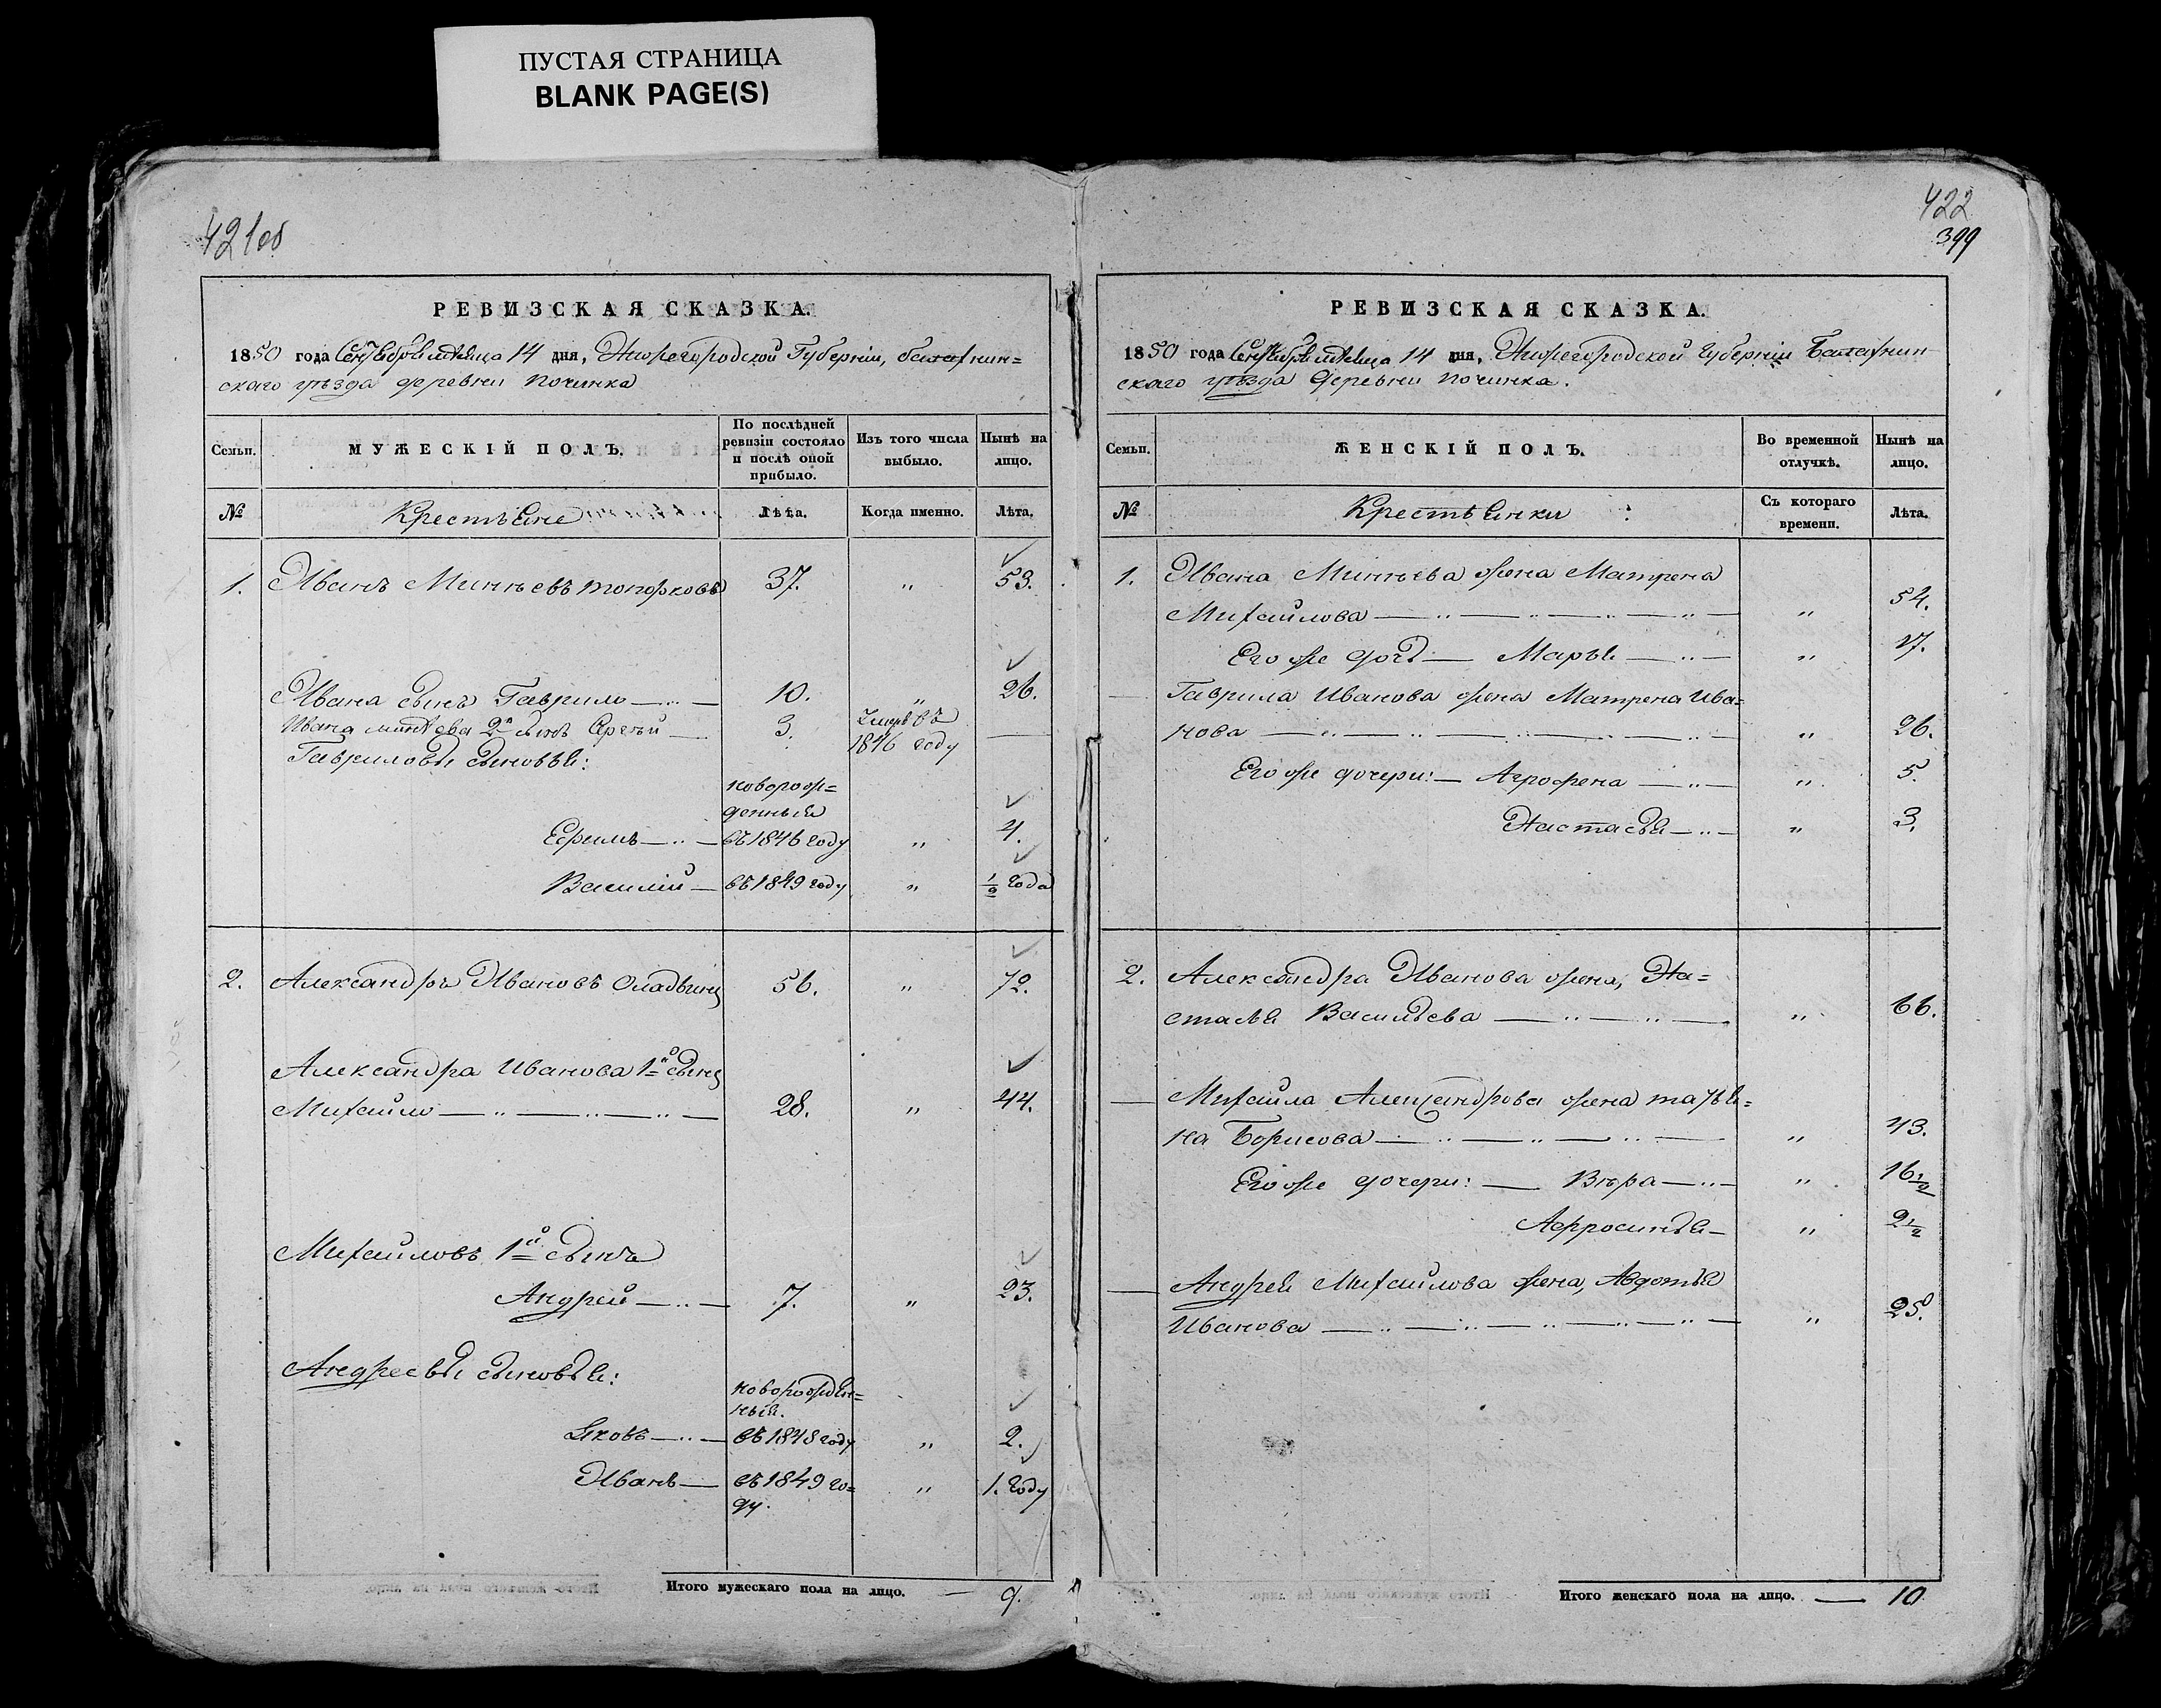 ПУСТАЯ СТРАНИЦА
BLANK PAGE(S)
421об
РЕВИЗСКАЯ СКАЗКА.
1850 года Сентября месяца 14 дня, Нижегородской Губернiи, балахнин=
скаго уѣзда деревни починка
Семьи.
МУЖЕСКІЙ ПОЛЪ.
По послѣдней ревизіи состояло и послѣ оной прибыло.
Изъ того числа выбыло.
Нынѣ на лицо.
№
Крестьяне
Лѣта.
Когда именно.
Лѣта.
1. Иванъ Минѣевъ топорковъ 37. " 53.
Ивана сынъ Гаврило 10. " 26.
Ивана минѣева 2й сынъ Сергѣй 3. Умеръ въ 1846 году
Гавриловы сыновья:
новорож=
денныя
Ефимъ въ 1846 году " 4.
Василiй въ 1849 году " 1/2 года
2. Александръ Ивановъ 56. " 72.
Александра Иванова 1й сынъ
Михайло 28. " 44.
Михайловъ 1й сынъ
Андрей 7. " 23.
Андреевы сыновья:
новорожден=
ныя.
Яковъ въ 1848 году " 2.
Иванъ въ 1849 го= " 1. году
ду.
Итого мужескаго пола на лицо. 9.
422
399
РЕВИЗСКАЯ СКАЗКА.
1850 года Сентября месяца 14 дня, Нижегородской Губернiи Балахнин
скаго уѣзда Деревни починка.
Семьи.
ЖЕНСКІЙ ПОЛЪ.
Во временной отлучкѣ.
Нынѣ на лицо.
№
Крестьянки
Съ котораго времени.
Лѣта.
1. Ивана Минѣева жена Матрена
Михайлова " 54.
Его же дочь Марья " 17.
Гаврила Иванова жена Матрена Ива=
нова " 26.
Его же дочери: Агрофена " 5.
Настасья " 3.
2. Александра Иванова жена, На=
стасья Васильева " 66.
Михайла Александрова жена татья=
на Борисова " 43.
Его же дочери: Вѣра " 16 1/2
Афросинья " 2 1/2
Андрея Михайлова жена, Авдотья
Иванова " 25.
Итого женскаго пола на лицо. 10